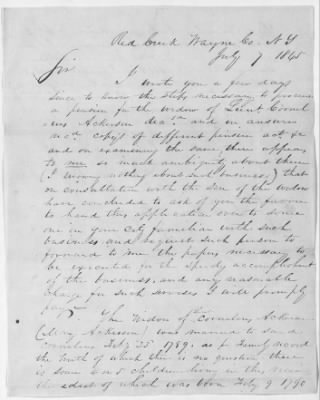 Red Creek Wayne Co. N Y
July 7 1845
Sir
I wrote you a few days
since to know the steps necessary to procure
a pension for the widow of Lieut Cornel
ius Ackerson dec.d and in answer
rec.d copys of different pension acts &c
and on examining the same, there appears
to me so much ambiguity about them
(I knowing nothing about such business) that
on consultation with the son of the widow
have concluded to ask of you the favour
to hand this application over to some
one in your City familiar with such
business and request such person to
forward to me the papers necessary to
be executed for the speedy accomplishment
of the business, and any reasonable
charge for such services I will promptly
pay.
The Widow of Cornelius Ackerson
(Mary Ackerson) was married to said
Cornelius Feby 25 1789, as pr Family record
the truth of which there is no question, there
is some 4 or 5 children living in this
the eldest of which was born July 9 1790